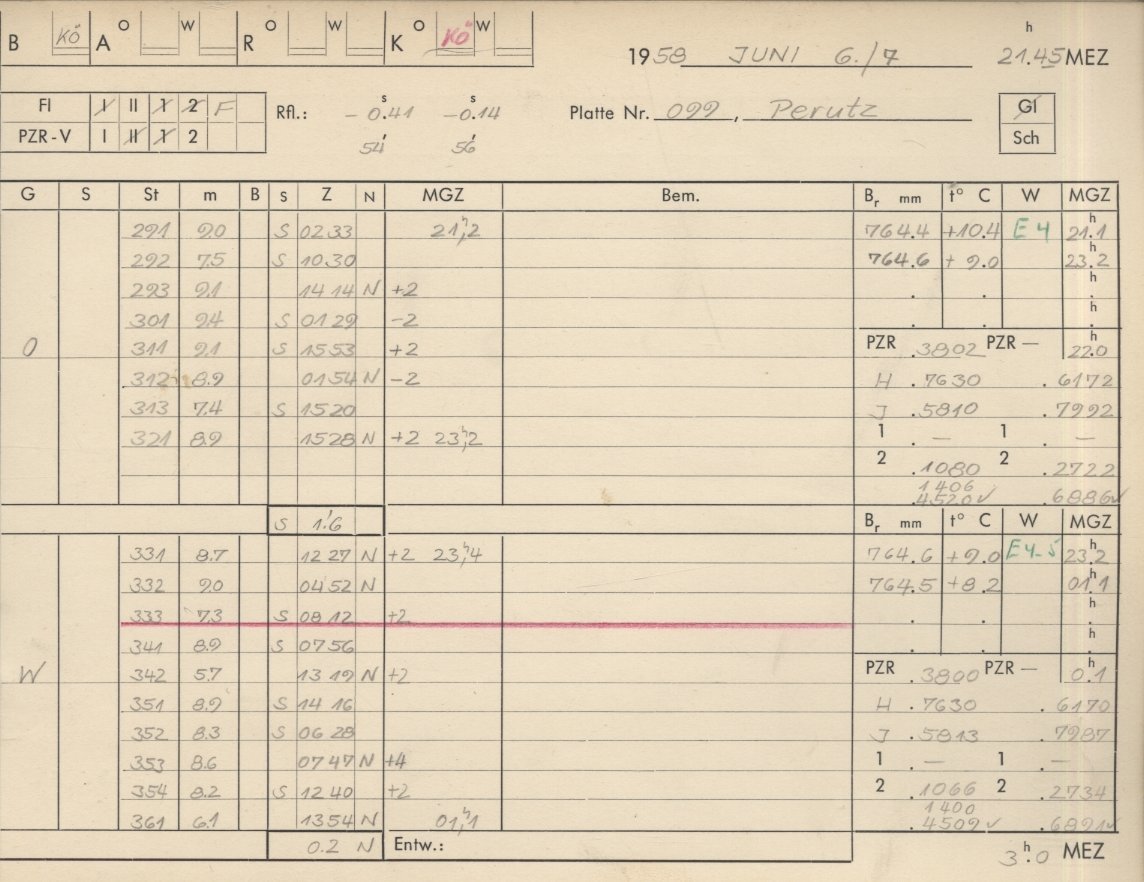 B Kö A O W R O W K O Kö W
1958 JUNI 6./7 21.45 h MEZ
Fl I II 1 2 F
PZR-V I II 1 2
Rfl.: -0.41 s -0.14 s
54' 56'
Platte Nr. 099, Perutz
Gl
Sch
G S St m B S Z N MGZ Bem. Br mm t° C W MGZ
291 9.0 S 02 33 21h,2 764.4 +10.4 E4 21.1 h
292 7.5 S 10 30 764.6 +9.0 23.2 h
293 9.1 14 14 N +2 . . h
301 9.4 S 01 29 -2 . . h
O 311 9.1 S 15 53 +2 PZR .3802 PZR — 22.0 h
312 8.9 01 54 N -2 H .7630 .6172
313 7.4 S 15 20 J .5810 .7992
321 8.9 15 28 N +2 23h,2 1 . — 1 . —
2 .1080 2 .2722
1406
.4520 ✓ .6886 ✓
S 1.'6 Br mm t° C W MGZ
331 8.7 12 27 N +2 23h,4 764.6 +9.0 E4-5 23.2 h
332 9.0 04 52 N 764.5 +8.2 01.1 h
333 7.3 S 08 12 +2 . . h
341 8.9 S 07 56 . . h
W 342 5.7 13 19 N +2 PZR .3800 PZR — 0.1 h
351 8.9 S 14 16 H .7630 .6170
352 8.3 S 06 28 J .5813 .7987
353 8.6 07 47 N +4 1 . — 1 . —
354 8.2 S 12 40 +2 2 .1066 2 .2734
1400
361 6.1 13 54 N 01h,1 .4509 ✓ .6891 ✓
0.2 N Entw.: 3.0 h MEZ